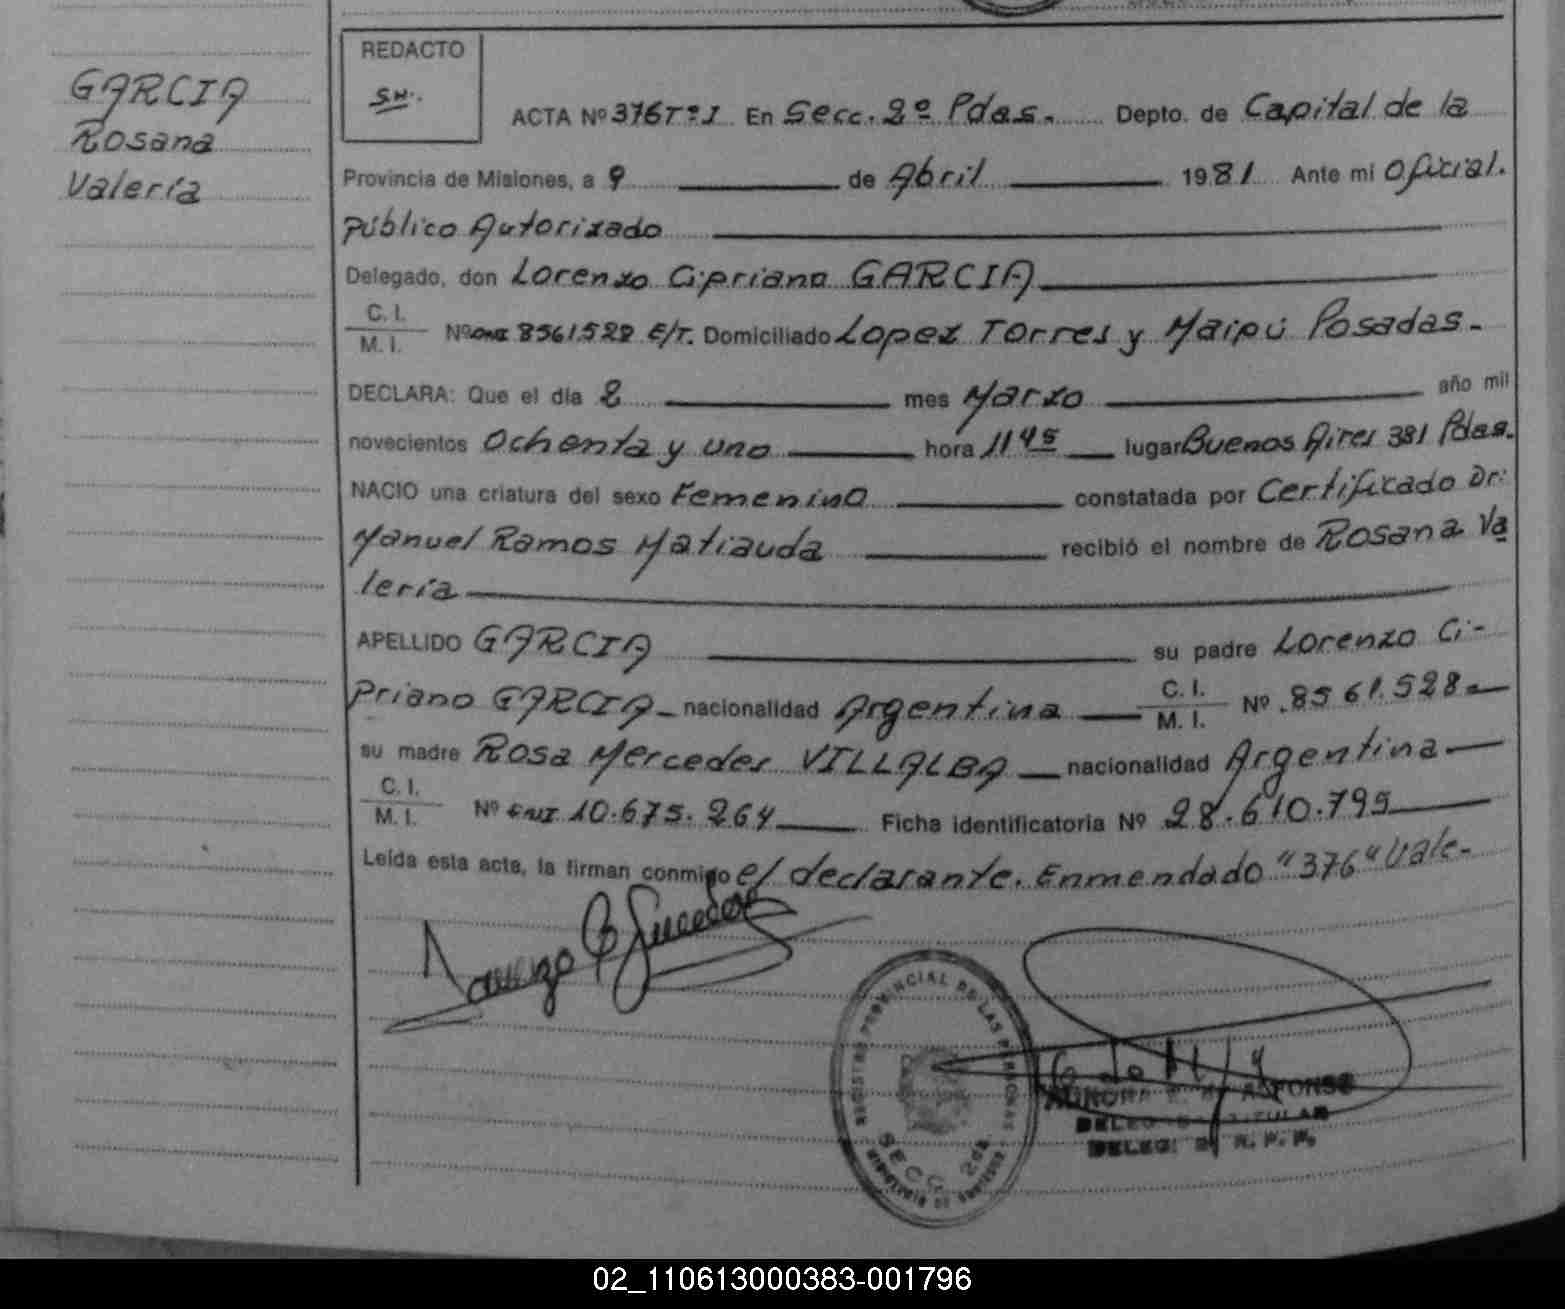 GARCIA
Rosana
Valeria
REDACTO
SH.
ACTA Nº 376 Tº I En Secc. 2º Pdas. Depto. de Capital de la
Provincia de Misiones, a 9 de Abril 1981 Ante mi Oficial.
público Autorizado
Delegado, don Lorenzo Cipriano GARCIA
C. I.
M. I. Nº DNI 8561.528 E/T. Domiciliado Lopez Torres y Maipú Posadas.
DECLARA: Que el día 2 mes Marzo año mil
novecientos Ochenta y uno hora 11 45 lugar Buenos Aires 381 Pdas.
NACIO una criatura del sexo Femenino constatada por Certificado Dr:
Manuel Ramos Matiauda recibió el nombre de Rosana Va
leria
APELLIDO GARCIA su padre Lorenzo Ci-
priano GARCIA nacionalidad Argentina C. I.
M. I. Nº 8561.528
su madre Rosa Mercedes VILLALBA nacionalidad Argentina
C. I.
M. I. Nº 10.675.264 Ficha identificatoria Nº 28.610.795
Leída esta acta, la firman conmigo el declarante. Enmendado "376" Vale-
REGISTRO PROVINCIAL DE LAS PERSONAS
SECC. 2da
DELEG. R. P. P.
02_110613000383-001796